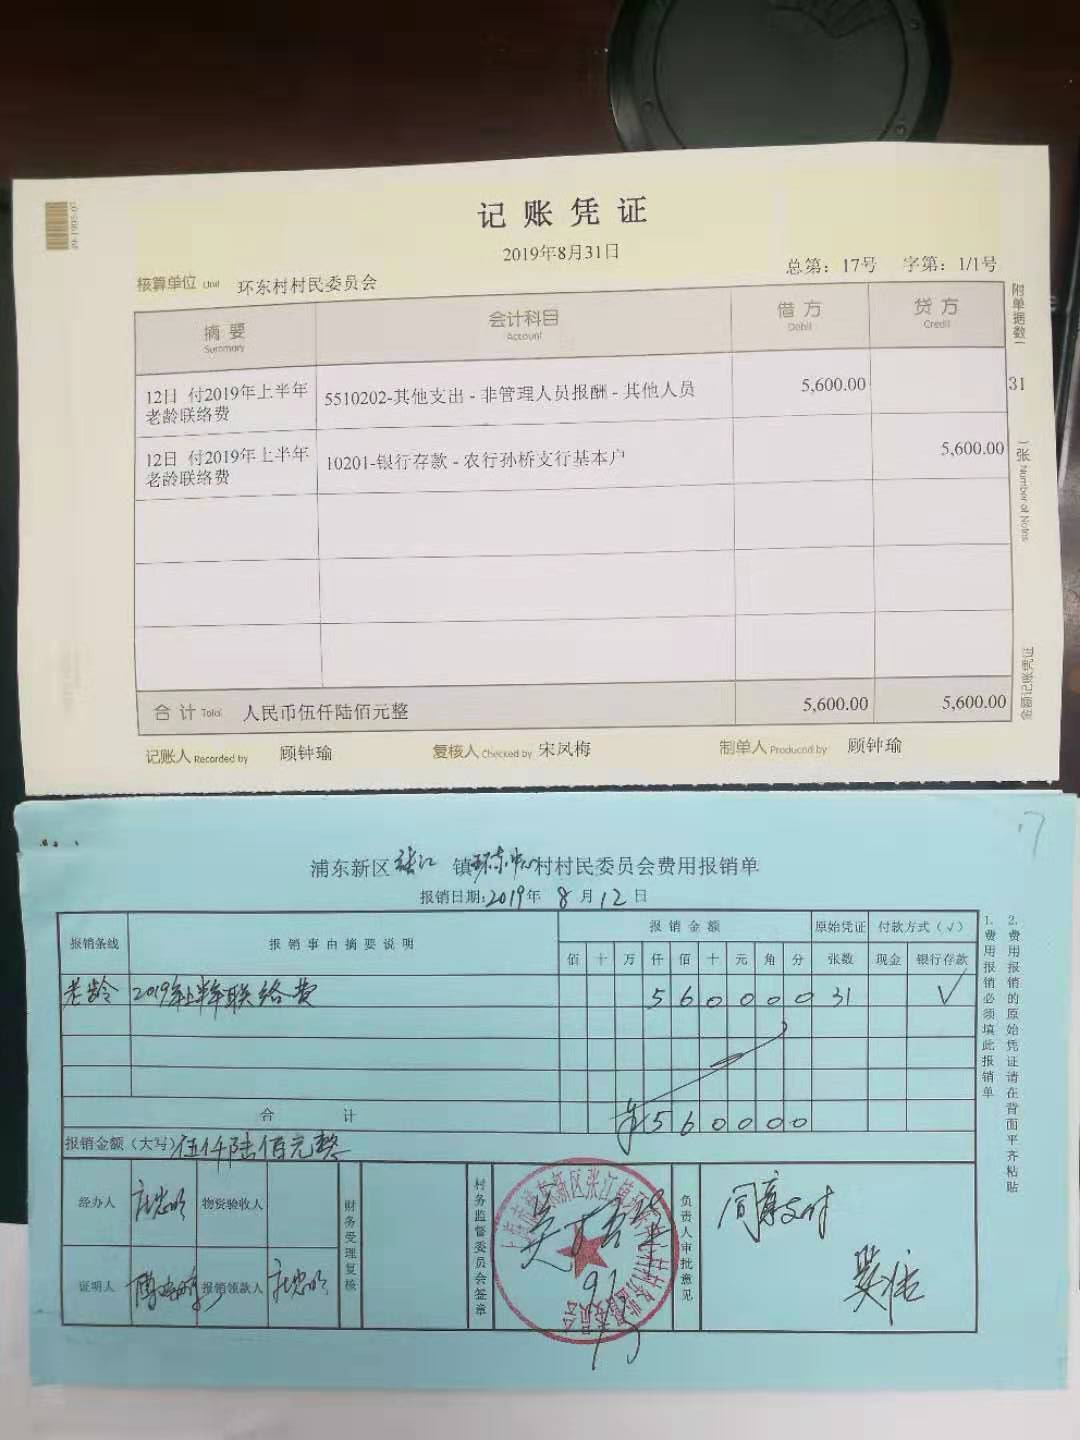 记账凭证
2019年8月31日
总第：17号 字第：1/1号
核算单位 Unit 环东村村民委员会
附单据数 31 张 Number of Notes
摘要 会计科目 借方 贷方
Summary Account Debit Credit
12日 付2019年上半年 5510202-其他支出 - 非管理人员报酬 - 其他人员 5,600.00
老龄联络费
12日 付2019年上半年 10201-银行存款 - 农行孙桥支行基本户 5,600.00
老龄联络费
合计 Total 人民币伍仟陆佰元整 5,600.00 5,600.00
金额记账凭证
记账人 Recorded by 顾钟瑜 复核人 Checked by 宋凤梅 制单人 Produced by 顾钟瑜
17
浦东新区张江镇环东中心村村民委员会费用报销单
报销日期:2019年8月12日
报销条线 报销事由摘要说明 报销金额 原始凭证 付款方式（√）
佰 十 万 仟 佰 十 元 角 分 张数 现金 银行存款
老龄 2019年上半年联络费 5 6 0 0 0 0 31 √
合计 ¥ 5 6 0 0 0 0
报销金额（大写）伍仟陆佰元整
经办人 物资验收人 财务受理复核 村务监督委员会签章 负责人审批意见 同意支付
证明人 报销领款人
1.费用报销必须填此报销单
2.费用报销的原始凭证请在背面平齐粘贴